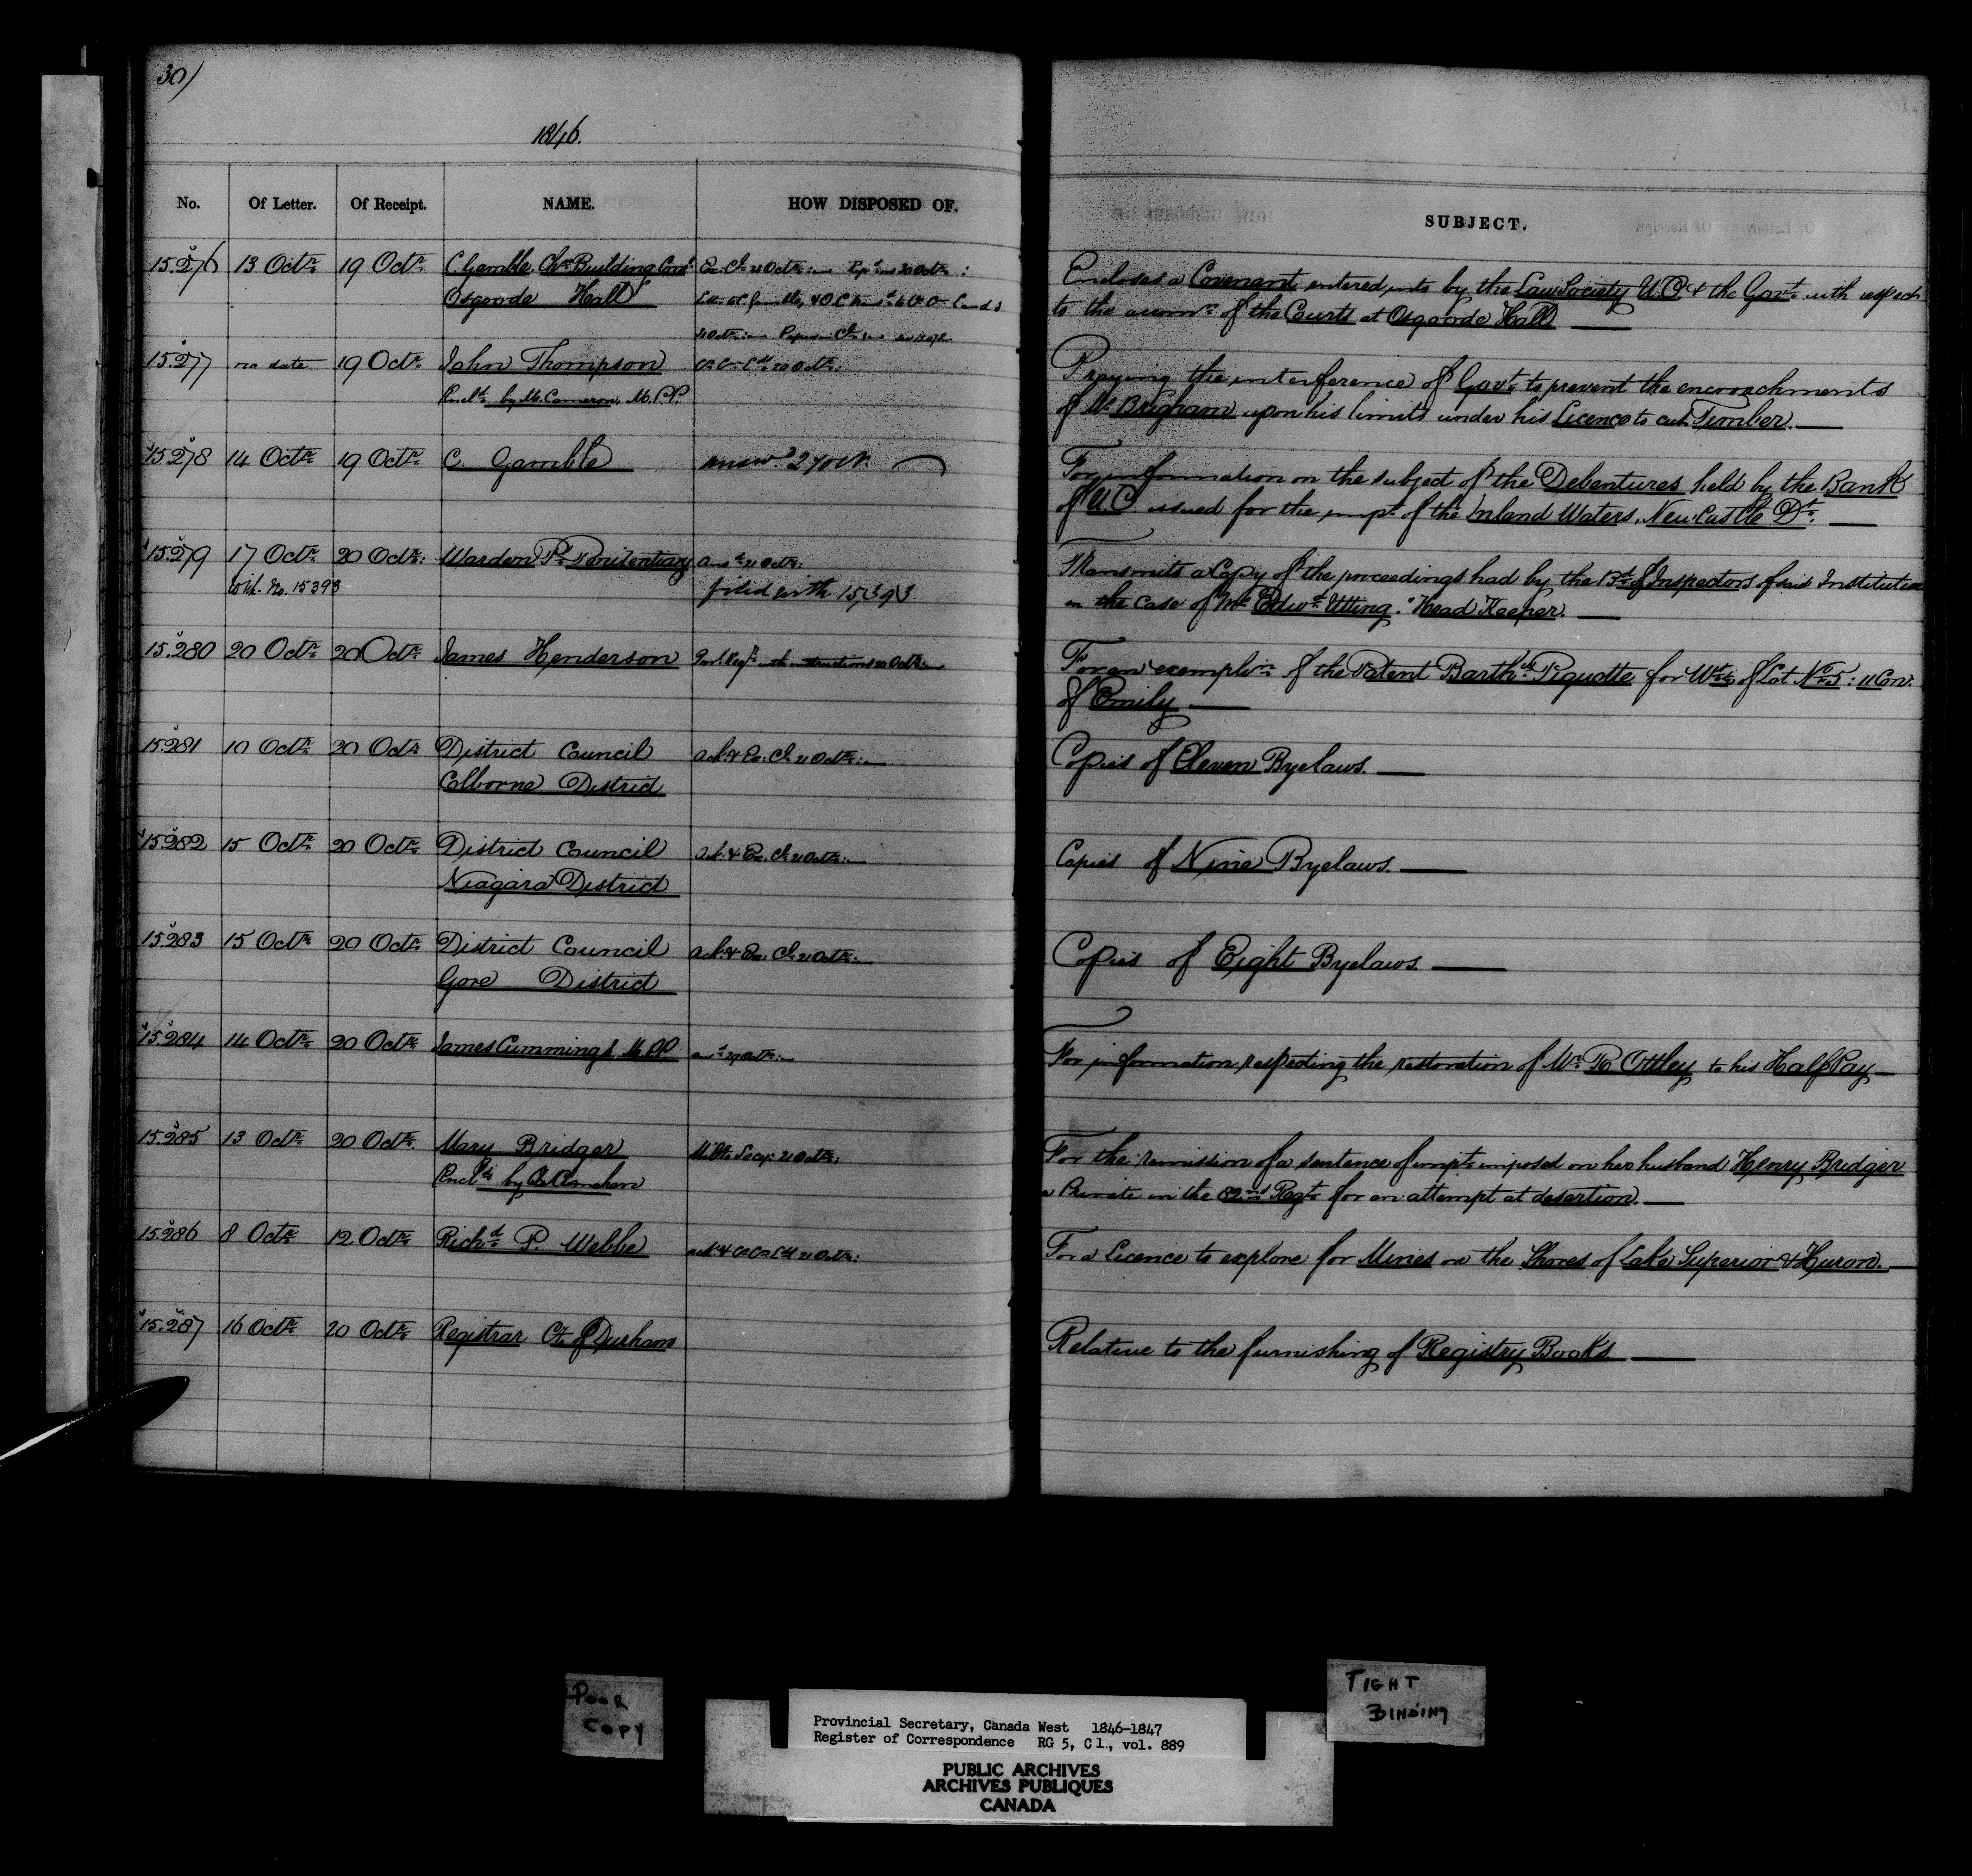 30)
1846.
No. Of Letter. Of Receipt. NAME. HOW DISPOSED OF.
SUBJECT.
15.276 13 Octr. 19 Octr. C. Gamble, Chn Building Comt. Ex. Cl. 21 Octr: Repd 20 Octr:
Osgoode Hall
Encloses a Covenant entered into by the Law Society U.C. & the Govt. with respect
to the accomn. of the Courts at Osgoode Hall
15.277 no date 19 Octr. John Thompson 20 Octr:
Encld. by M. Cameron, M.P.P.
Praying the interference of Govt. to prevent the encroachments
of Mr. Brigham upon his limits under his Licence to cut Timber.
15.278 14 Octr. 19 Octr. C. Gamble answd. 27 Oct.
For information on the subject of the Debentures held by the Bank
of U.C. issued for the impt. of the Inland Waters, New-Castle Dt.
15.279 17 Octr. 20 Octr: Warden Pl. Penitentiary Ansd. 21 Octr:
With No. 15393 filed with 15,393.
Transmits a Copy of the proceedings had by the Bd. of Inspectors of this Institution
in the Case of Mr. Edwd. Utting. "Head Keeper.
15.280 20 Octr. 20 Octr. James Henderson Provl. Regr. with instructions 20 Octr:
For an exemplion. of the Patent Barthw. Piquotte for W½ of Lot No. 5: 11 Con:
of Emily
15.281 10 Octr. 20 Octr. District Council Ack. & Ex. Cl. 21 Octr:
Colborne District
Copies of Eleven Byelaws.
15.282 15 Octr. 20 Octr. District Council Ack. & Ex. Cl. 21 Octr:
Niagara District
Copies of Nine Byelaws.
15.283 15 Octr. 20 Octr. District Council Ack. & Ex. Cl. 21 Octr:
Gore District
Copies of Eight Byelaws.
15.284 14 Octr. 20 Octr. James Cummings, M.P.P. ansd. 29 Octr:
For information respecting the restoration of Mr. R Ottley to his Half Pay
15.285 13 Octr. 20 Octr. Mary Bridger Milty. Secy. 21 Octr:
Encld. by
For the remission of a sentence of impt. imposed on her husband Henry Bridger
a Private in the 82nd Regt. for an attempt at desertion.
15.286 8 Octr. 12 Octr. Richd. P. Webbe ack. & 21 Octr:
For a Licence to explore for Mines on the Shores of Lake Superior & Huron.
15.287 16 Octr. 20 Octr. Registrar Cty. of Durham
Relative to the furnishing of Registry Books
POOR
COPY
TIGHT
BINDING
Provincial Secretary, Canada West 1846-1847
Register of Correspondence RG 5, C 1., vol. 889
PUBLIC ARCHIVES
ARCHIVES PUBLIQUES
CANADA